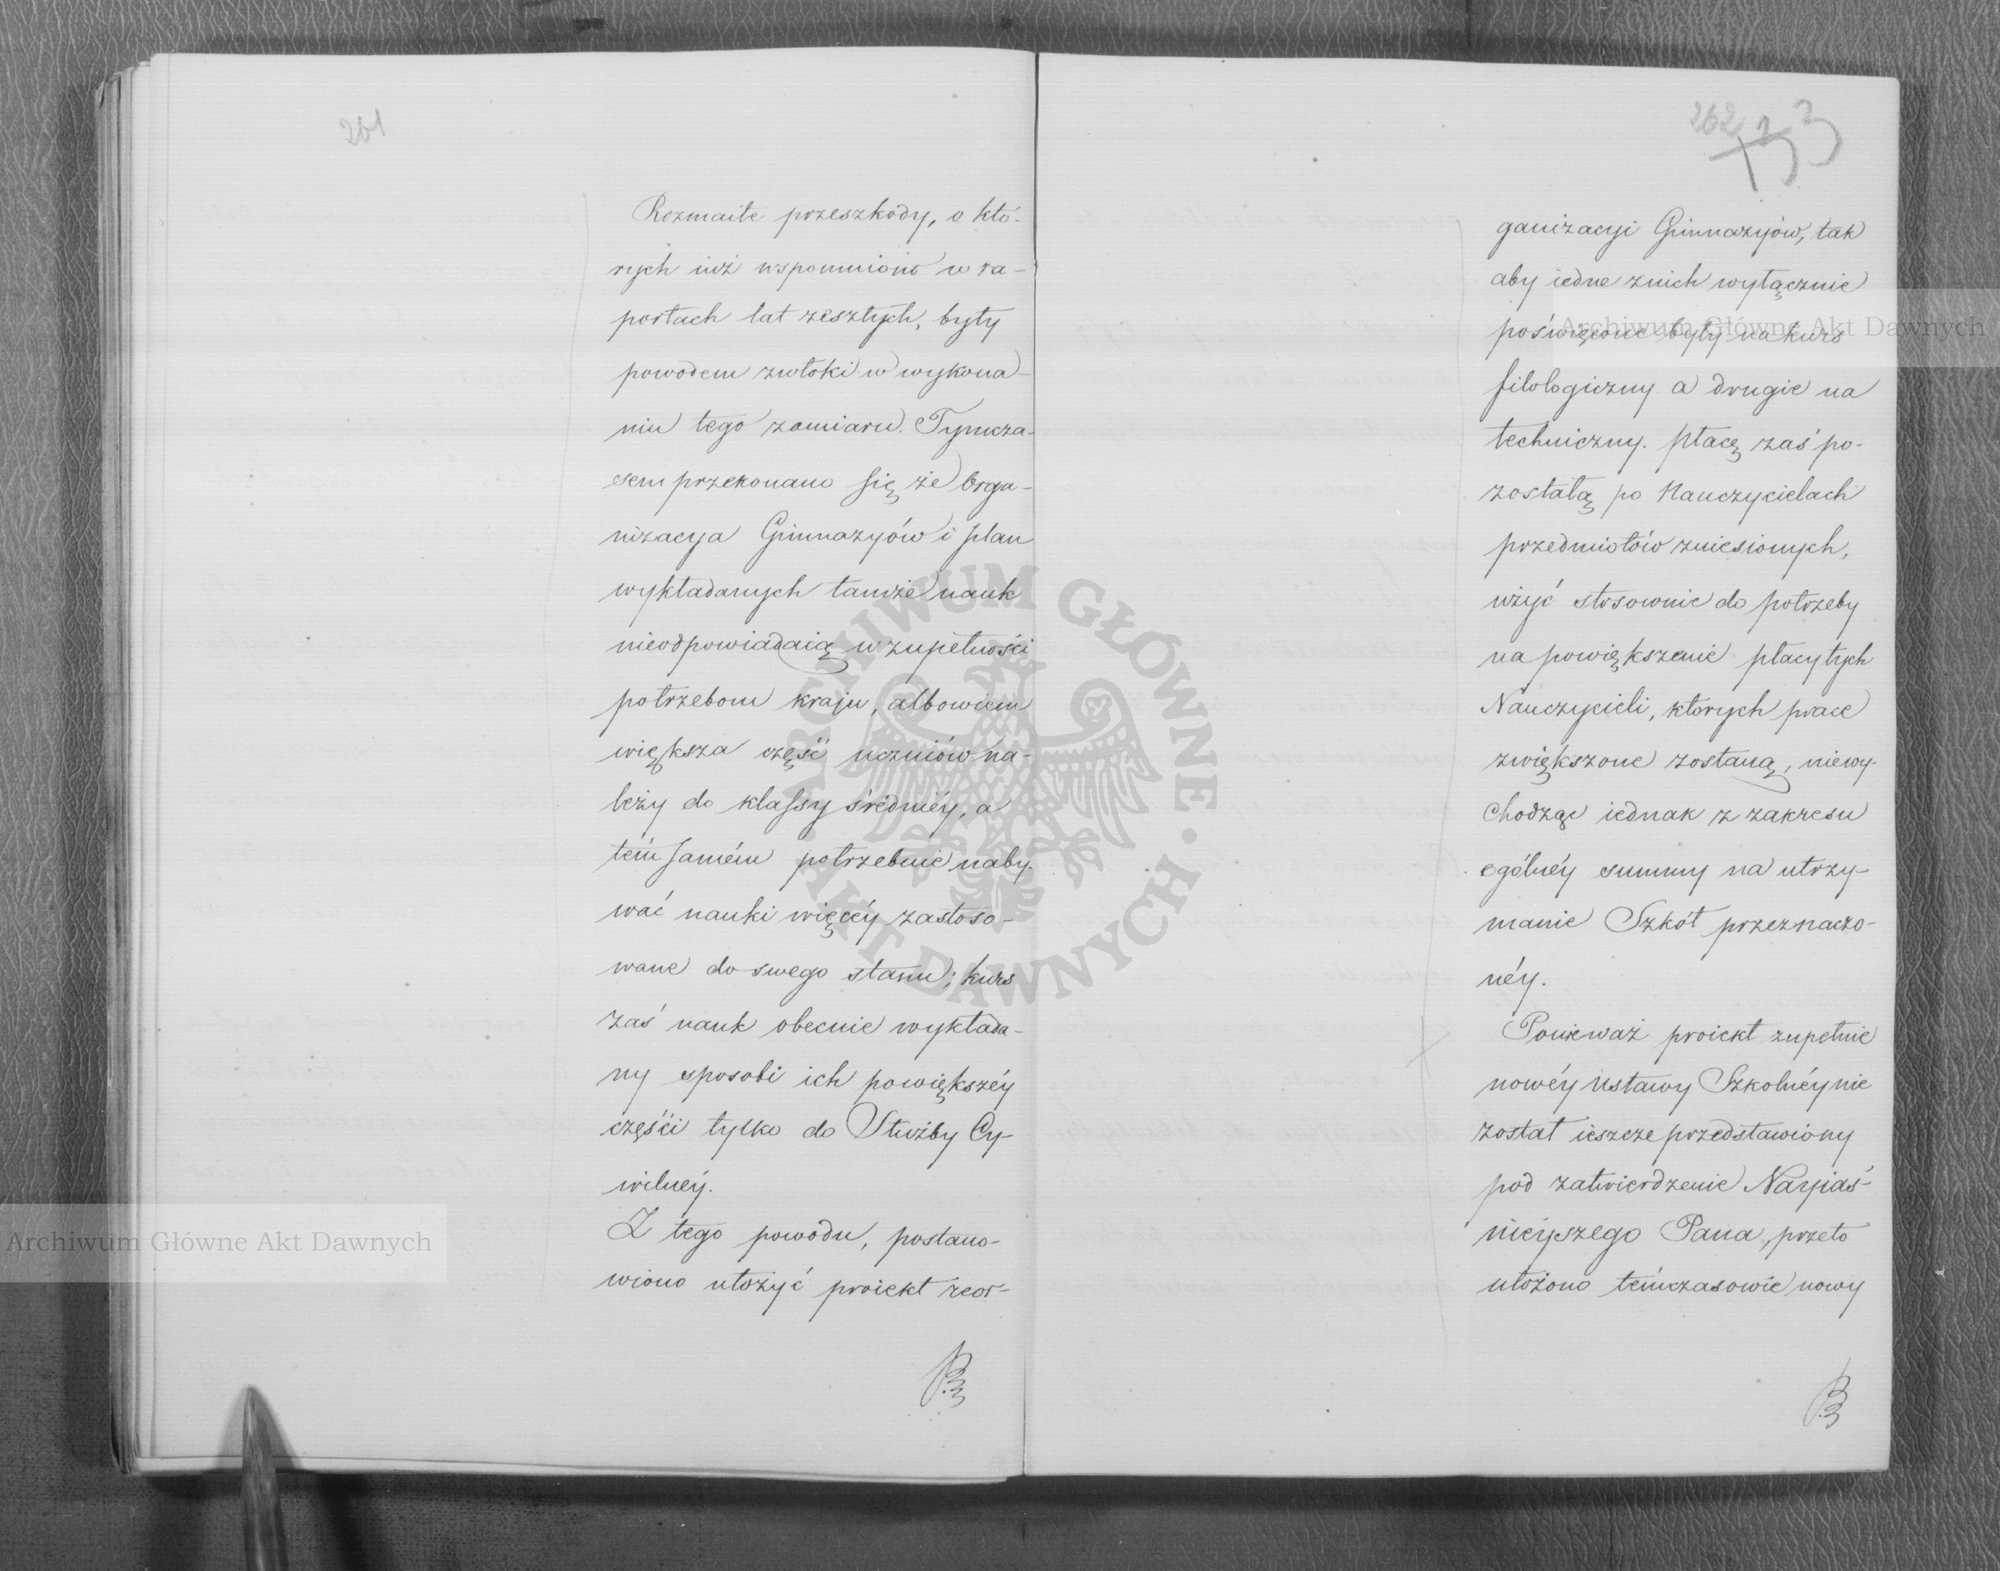 261
Rozmaite przeszkody, o któ-
rych iuż wspomniono w ra-
portach lat zeszłych, były
powodem zwłoki w wykona-
niu tego zamiaru. Tymcza-
sem przekonano się że Orga-
nizacya Gimnazyów i plan
wykładanych tamże nauk
nieodpowiadaią w zupełności
potrzebom kraju, albowiem
większa część uczniów na-
leży do klassy średniéy, a
tém samém potrzebnie naby-
wać nauki więcéy zastoso-
wane do swego stanu; kurs
zaś nauk obecnie wykłada-
ny sposobi ich powiększéy
części tylko do Służby Cy-
wilnéy.
Z tego powodu, postano-
wiono ułożyć proiekt reor-
262
ganizacyi Gimnazyów, tak
aby iedne znich wyłącznie
poświęcone były na kurs
filologiczny a drugie na
techniczny. płacę zaś po-
zostałą po Nauczycielach
przedmiotów zniesionych,
użyć stosownie do potrzeby
na powiększenie płacy tych
Nauczycieli, których prace
zwiększone zostaną, niewy-
chodząc iednak z zakresu
ogólnéy summy na utrzy-
manie Szkół przeznaczo-
néy.
Ponieważ proiekt zupełnie
nowéy Ustawy Szkolnéy nie
został ieszcze przedstawiony
pod zatwierdzenie Nayiaś-
nieyszego Pana, przeto
ułożono témczasowie nowy
Archiwum Główne Akt Dawnych
Archiwum Główne Akt Dawnych
ARCHIWUM GŁÓWNE · AKT DAWNYCH ·